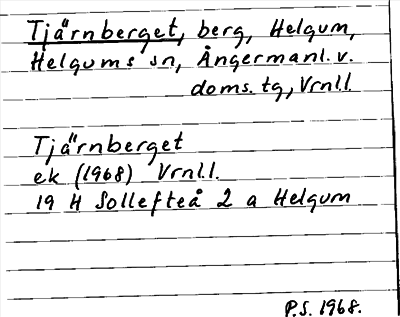 Tjärnberget, berg, Helgum,
Helgums sn, Ångermanl. v.
doms. tg, Vrnl.l.
Tjärnberget
ek (1968) Vrnl.l.
19 H Sollefteå 2 a Helgum
P.S. 1968.